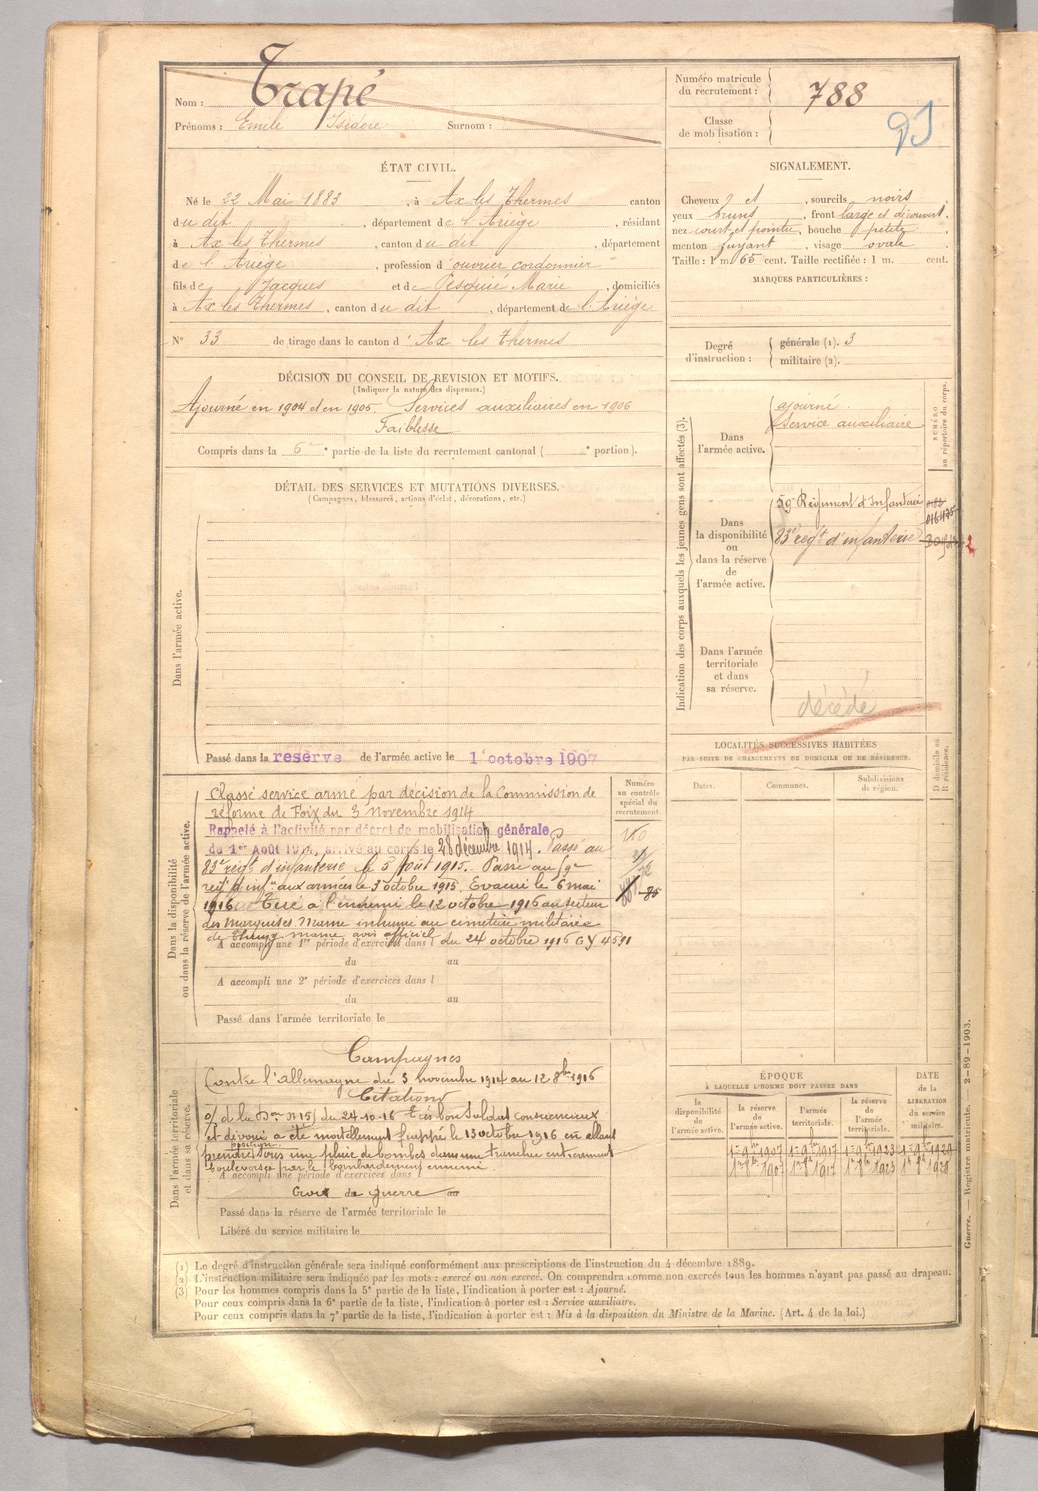 Nom : Trapé
Prénoms : Emile Isidore Surnom :
Numéro matricule du recrutement : 788
Classe de mobilisation :
ÉTAT CIVIL.
Né le 22 Mai 1883, à Ax les Thermes canton
du dit, département de l'Ariège, résidant
à Ax les Thermes, canton du dit, département
de l'Ariège, profession d'ouvrier cordonnier
fils de Jacques et de Pesquié Marie, domiciliés
à Ax les Thermes, canton du dit, département de l'Ariège
N° 33 de tirage dans le canton d'Ax les Thermes
SIGNALEMENT.
Cheveux , sourcils noirs
yeux bruns, front large et découvert.
nez court et pointu, bouche petite
menton fuyant, visage ovale.
Taille : 1 m. 65 cent. Taille rectifiée : 1 m. cent.
MARQUES PARTICULIÈRES :
Degré d'instruction :
générale (1). 3
militaire (2).
DÉCISION DU CONSEIL DE REVISION ET MOTIFS.
(Indiquer la nature des dispenses.)
Ajourné en 1904 et en 1905 Services auxiliaires en 1906
Faiblesse
Compris dans la 6e partie de la liste du recrutement cantonal ( e portion).
DÉTAIL DES SERVICES ET MUTATIONS DIVERSES.
(Campagnes, blessures, actions d'éclat, décorations, etc.)
Dans l'armée active.
Passé dans la réserve de l'armée active le 1 octobre 1907
Indication des corps auxquels les jeunes gens sont affectés (3).
NUMÉRO au répertoire du corps.
Dans l'armée active.
ajourné
Service auxiliaire
Dans la disponibilité ou dans la réserve de l'armée active.
59e Régiment d'Infanterie
83e régt d'infanterie
Dans l'armée territoriale et dans sa réserve.
décédé
LOCALITÉS SUCCESSIVES HABITÉES
PAR SUITE DE CHANGEMENTS DE DOMICILE OU DE RÉSIDENCE.
Dates. Communes. Subdivisions de région.
D domicile ou R résidence.
Dans la disponibilité ou dans la réserve de l'armée active.
Numéro au contrôle spécial du recrutement.
Classé service armé par décision de la Commission de
réforme de Foix du 3 novembre 1914
Rappelé à l'activité par décret de mobilisation générale
du 1er Août 1914, arrivé au corps le 28 décembre 1914. Passé au
83e régt d'infanterie le 5 Août 1915. Passé au 59e
régt d'infie aux armées le 3 octobre 1915. Evacué le 6 mai
1916 Tué à l'ennemi le 12 octobre 1916 au secteur
des Marquises Marne inhumé au cimetière militaire
de Thuizy Marne avis officiel du 24 octobre 1916 GY 4591
A accompli une 1re période d'exercices dans l
du au
A accompli une 2e période d'exercices dans l
du au
Passé dans l'armée territoriale le
Dans l'armée territoriale et dans sa réserve.
Campagnes
Contre l'allemagne du 3 novembre 1914 au 12 8bre 1916
Citations
O/ d la Don n° 15 du 24-10-16 Très bon Soldat consciencieux
et dévoué a été mortellement frappé le 13 octobre 1916 en allant
prendre position sous une pluie de bombes dans une tranchée entièrement
bouleversée par le bombardement ennemi
A accompli une période d'exercices dans l
Croix de guerre
Passé dans la réserve de l'armée territoriale le
Libéré du service militaire le
ÉPOQUE
À LAQUELLE L'HOMME DOIT PASSER DANS
DATE de la LIBÉRATION du service militaire.
la disponibilité de l'armée active.
la réserve de l'armée active.
l'armée territoriale.
la réserve de l'armée territoriale.
(1) Le degré d'instruction générale sera indiqué conformément aux prescriptions de l'instruction du 4 décembre 1889.
(2) L'instruction militaire sera indiquée par les mots : exercé ou non exercé. On comprendra comme non exercés tous les hommes n'ayant pas passé au drapeau.
(3) Pour les hommes compris dans la 5e partie de la liste, l'indication à porter est : Ajourné.
Pour ceux compris dans la 6e partie de la liste, l'indication à porter est : Service auxiliaire.
Pour ceux compris dans la 7e partie de la liste, l'indication à porter est : Mis à la disposition du Ministre de la Marine. (Art. 4 de la loi.)
Guerre. — Registre matricule. — 2-89-1903.